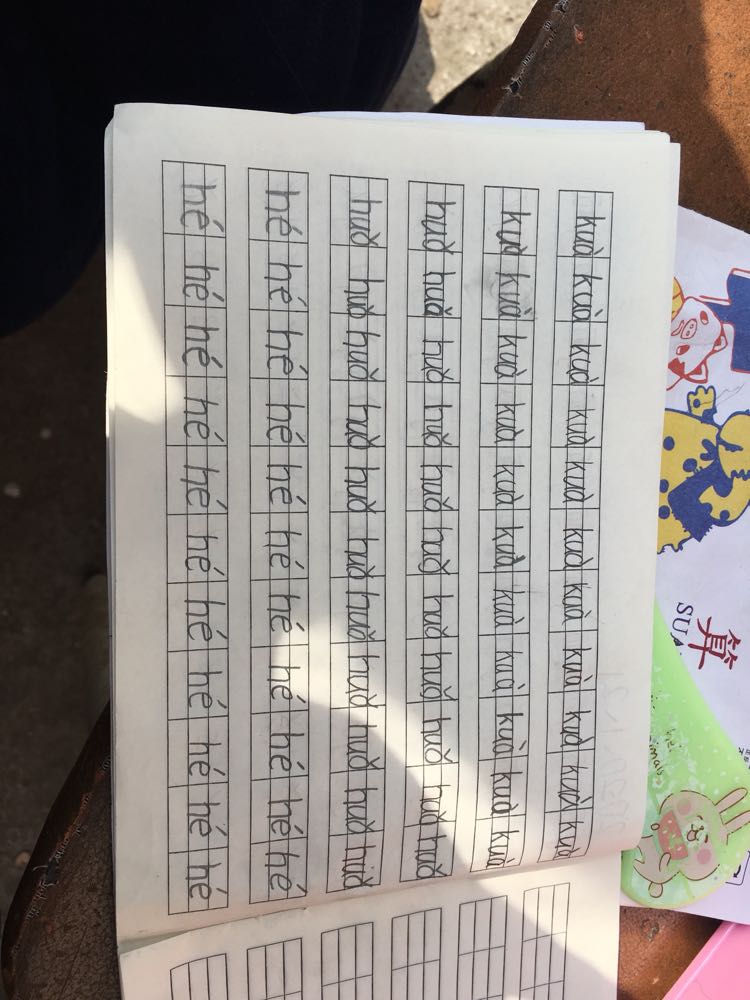 kuà kuà kuà kuà kuà kuà kuà kuà kuà kuà kuà
kuà kuà kuà kuà kuà kuà kuà kuà kuà kuà kuà
huò huò huò huò huò huò huò huò huò huò huò
huò huò huò huò huò huò huò huò huò huò huò
hé hé hé hé hé hé hé hé hé hé hé
hé hé hé hé hé hé hé hé hé hé hé
SU
算